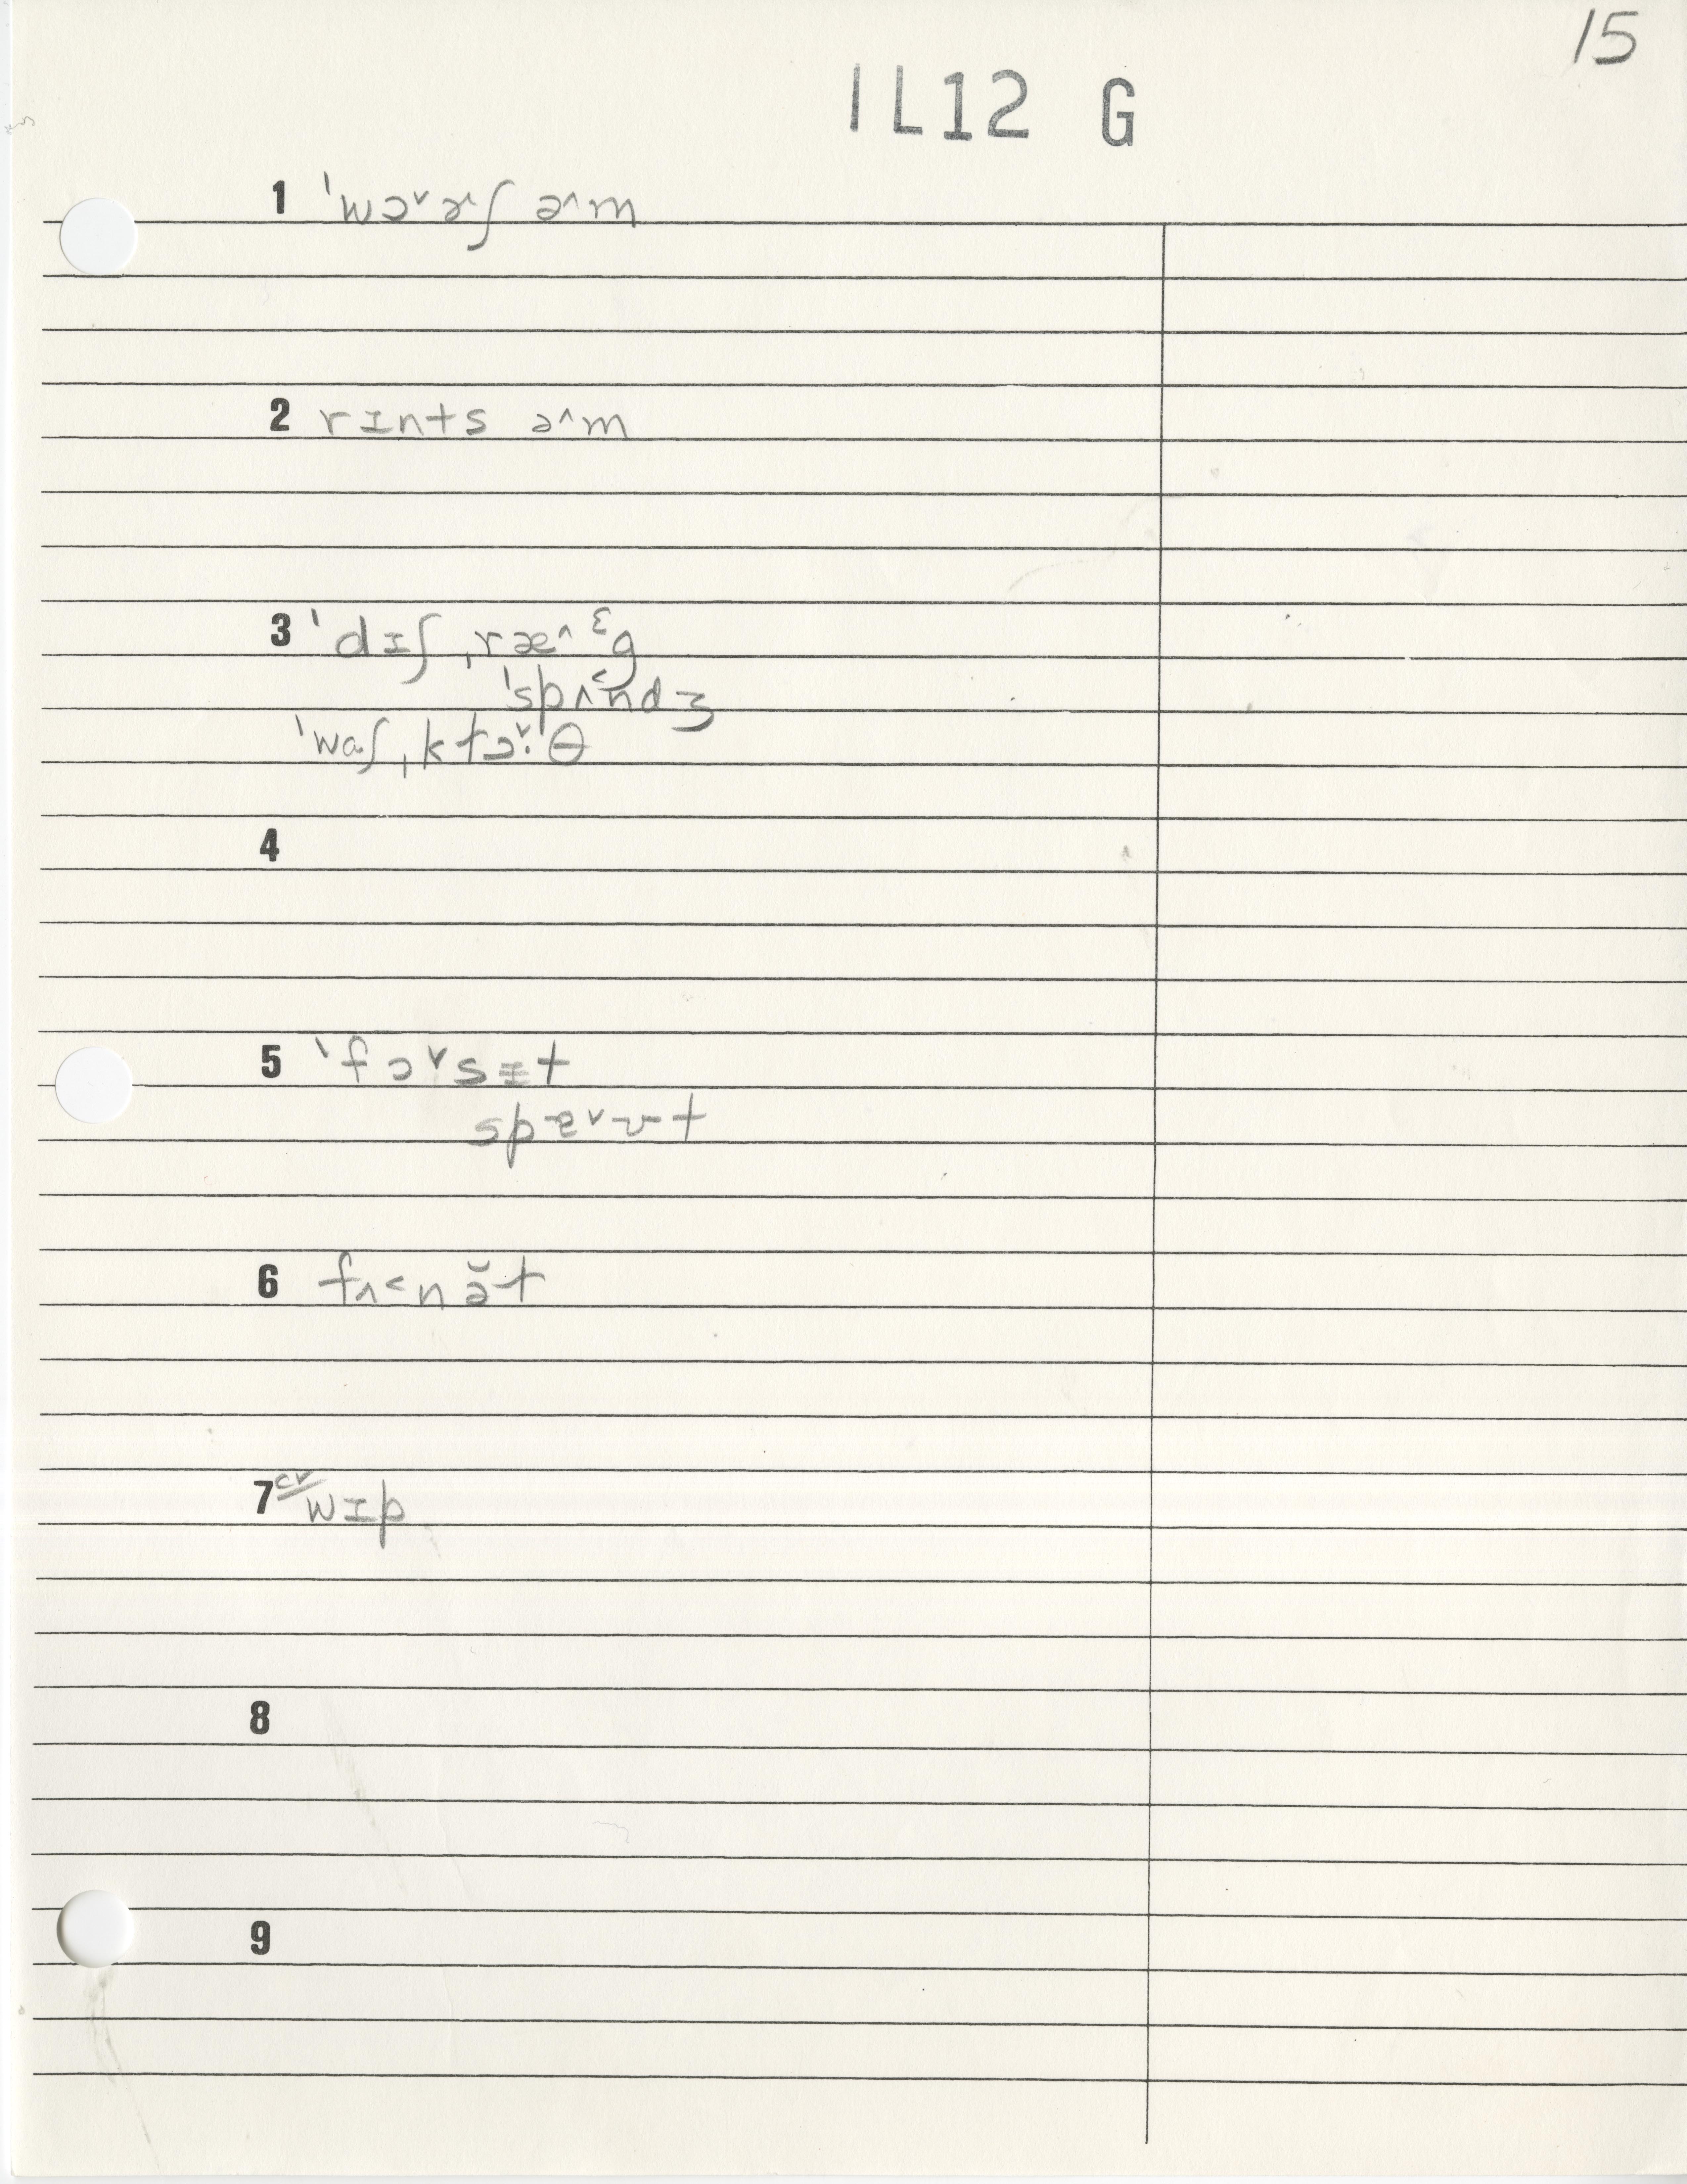 15
1L12 G
1 ˈwɔ˅ɚʃ ə˄m
2 rɪnts ə˄m
3 ˈdɪʃˌræ˄ᵋg
ˈspʌ˂ndʒ
ˈwɑʃˌktɔ˅·θ
4
5 ˈfɔ˅sɪt
6 fʌ˂nə̆t
7 cv wɪp
8
9